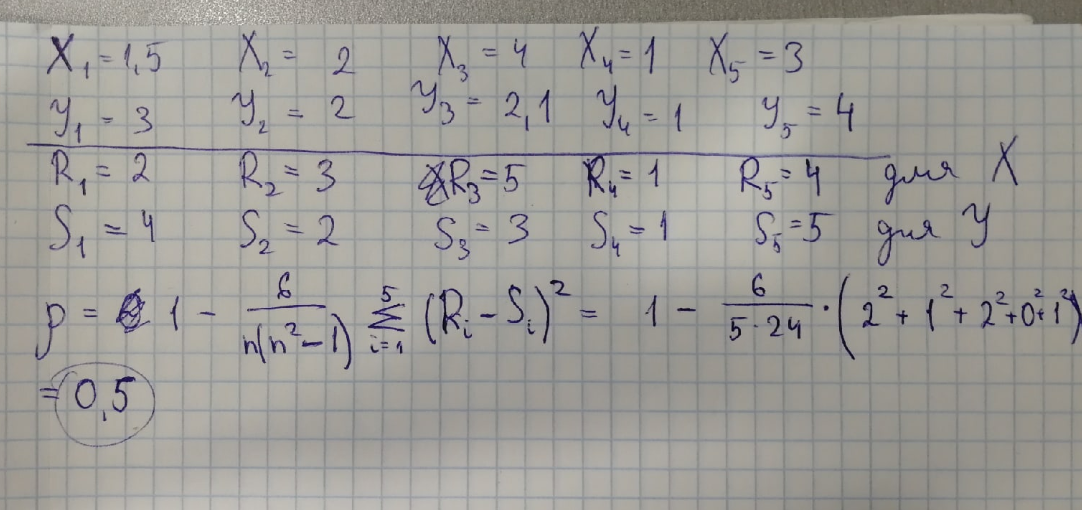 X₁ = 1,5 X₂ = 2 X₃ = 4 X₄ = 1 X₅ = 3
Y₁ = 3 Y₂ = 2 Y₃ = 2,1 Y₄ = 1 Y₅ = 4
R₁ = 2 R₂ = 3 R₃ = 5 R₄ = 1 R₅ = 4 для X
S₁ = 4 S₂ = 2 S₃ = 3 S₄ = 1 S₅ = 5 для Y
ρ = 1 - 6/(n(n² - 1)) ∑_{i=1}^{5} (Rᵢ - Sᵢ)² = 1 - 6/(5·24) · (2² + 1² + 2² + 0² + 1²)
= 0,5